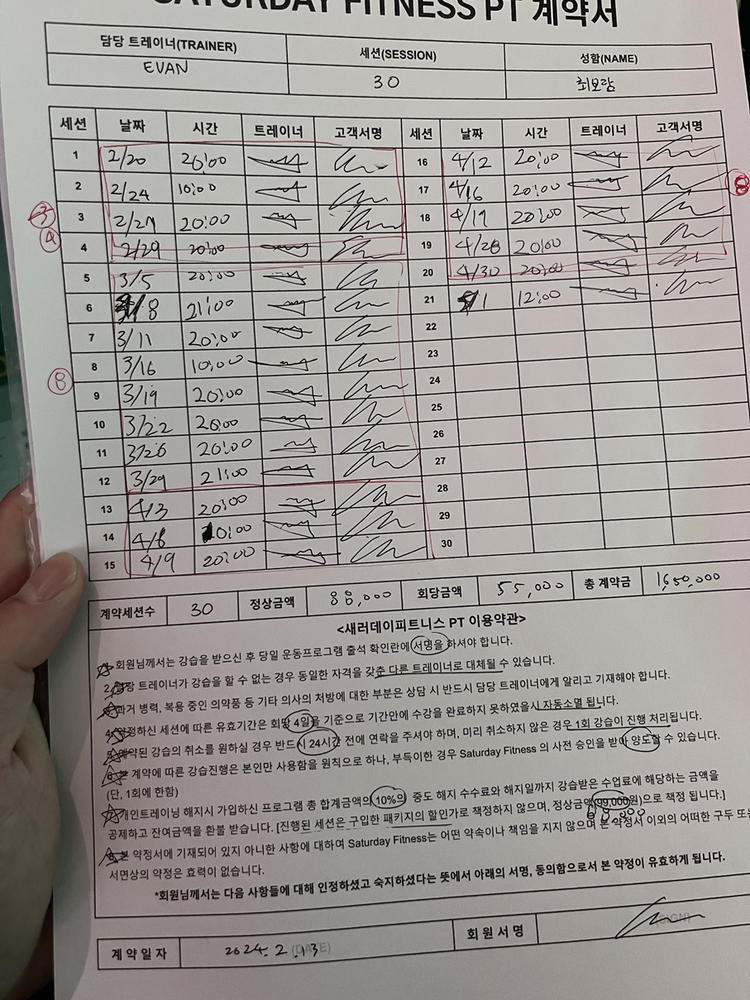 SATURDAY FITNESS PT 계약서
담당 트레이너(TRAINER) 세션(SESSION) 성함(NAME)
EVAN 30 최보람
세션 날짜 시간 트레이너 고객서명 세션 날짜 시간 트레이너 고객서명
1 2/20 20:00 16 4/12 20:00
2 2/24 10:00 17 4/16 20:00 ⑧
③ 3 2/27 20:00 18 4/19 20:00
④ 4 2/29 20:00 19 4/26 20:00
5 3/5 20:00 20 4/30 20:00
6 3/8 21:00 21 5/1 12:00
7 3/11 20:00 22
⑧ 8 3/16 10:00 23
9 3/19 20:00 24
10 3/22 20:00 25
11 3/26 20:00 26
12 3/29 21:00 27
13 4/3 20:00 28
14 4/8 20:00 29
15 4/9 20:00 30
계약세션수 30 정상금액 88,000 회당금액 55,000 총 계약금 1,650,000
<새러데이피트니스 PT 이용약관>
1. 회원님께서는 강습을 받으신 후 당일 운동프로그램 출석 확인란에 서명을 하셔야 합니다.
2. 담당 트레이너가 강습을 할 수 없는 경우 동일한 자격을 갖춘 다른 트레이너로 대체될 수 있습니다.
3. 과거 병력, 복용 중인 의약품 등 기타 의사의 처방에 대한 부분은 상담 시 반드시 담당 트레이너에게 알리고 기재해야 합니다.
4. 약정하신 세션에 따른 유효기간은 회당 4일을 기준으로 기간안에 수강을 완료하지 못하였을시 자동소멸 됩니다.
5. 예약된 강습의 취소를 원하실 경우 반드시 24시간 전에 연락을 주셔야 하며, 미리 취소하지 않은 경우 1회 강습이 진행 처리됩니다.
6. 본 계약에 따른 강습진행은 본인만 사용함을 원칙으로 하나, 부득이한 경우 Saturday Fitness 의 사전 승인을 받아 양도할 수 있습니다.
(단, 1회에 한함)
7. 개인트레이닝 해지시 가입하신 프로그램 총 합계금액의 10%의 중도 해지 수수료와 해지일까지 강습받은 수업료에 해당하는 금액을
공제하고 잔여금액을 환불 받습니다. [진행된 세션은 구입한 패키지의 할인가로 책정하지 않으며, 정상금액(99,000원)으로 책정 됩니다.]
88,000
8. 본 약정서에 기재되어 있지 아니한 사항에 대하여 Saturday Fitness는 어떤 약속이나 책임을 지지 않으며 본 약정서 이외의 어떠한 구두 또는
서면상의 약정은 효력이 없습니다.
*회원님께서는 다음 사항들에 대해 인정하셨고 숙지하셨다는 뜻에서 아래의 서명, 동의함으로서 본 약정이 유효하게 됩니다.
계약일자 2024. 2. 13 (DATE) 회원서명 (SIGN)